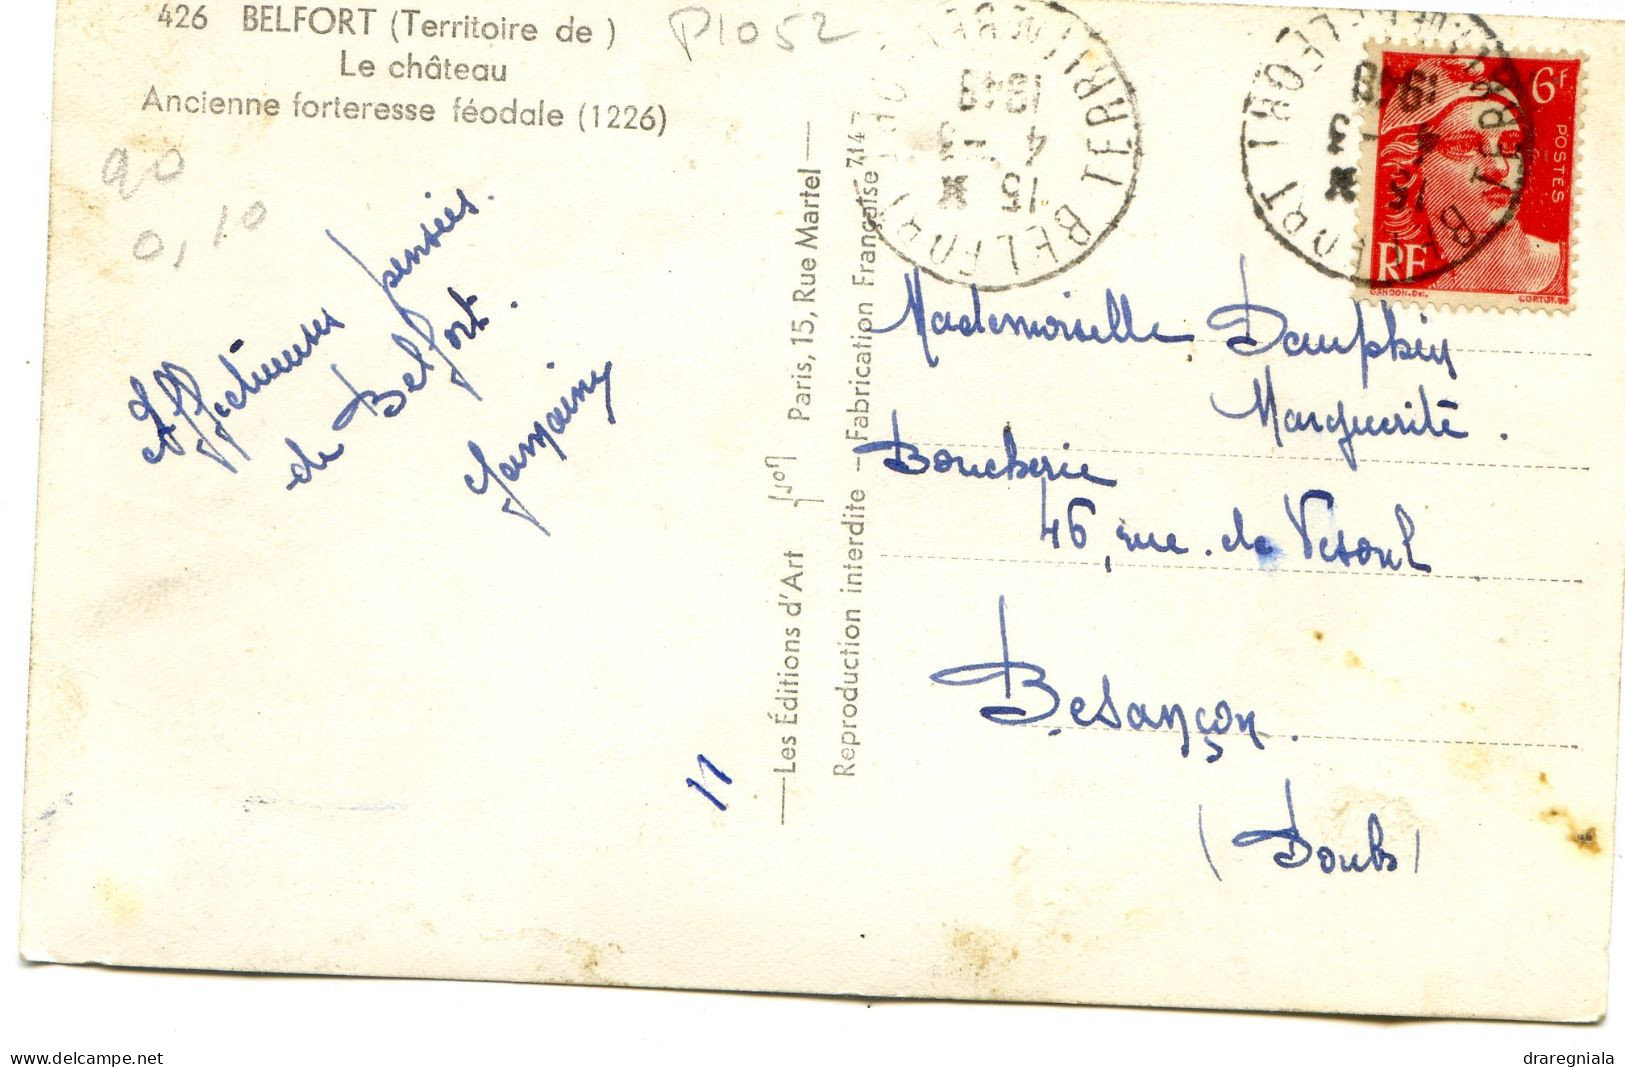 426 BELFORT (Territoire de )
Le château
Ancienne forteresse féodale (1226)
P1052
90
0,10
Affectueuses pensées
de Belfort.
Les Éditions d'Art Yvon Paris, 15, Rue Martel
Reproduction interdite — Fabrication Française 714
15 4 - 3
1949
BELFORT TERRRE DE BELFORT
6F
POSTES
RF
GANDON.Del.
CORTOT.SC
Mademoiselle Dauphin
Marguerite.
Boucherie
46, rue de Vesoul
Besançon.
(Doubs)
11
delcampe.net
draregniala